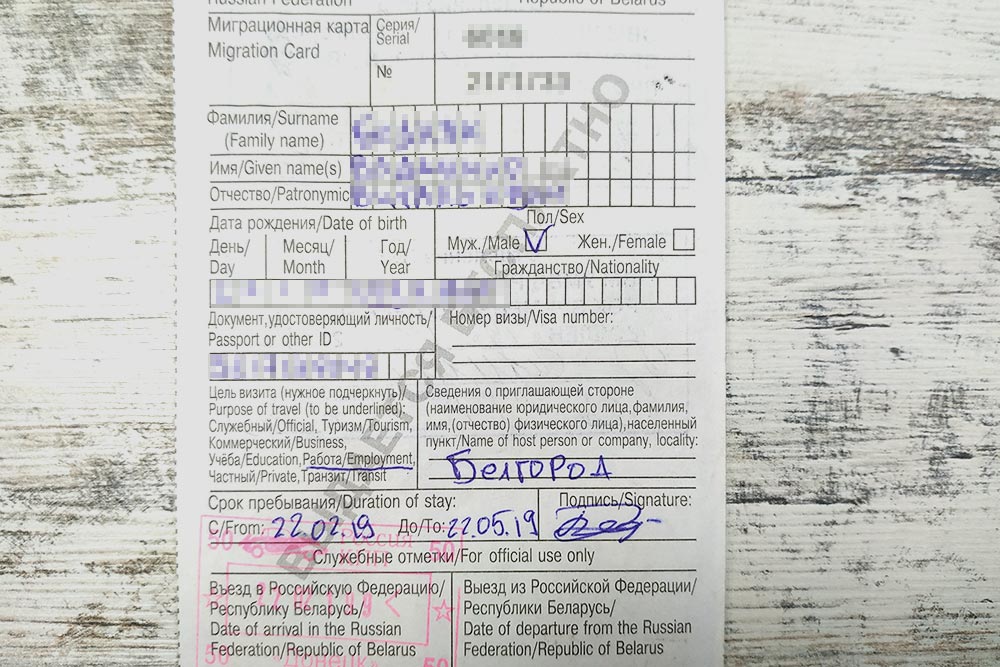 Russian Federation
Republic of Belarus
Миграционная карта
Migration Card
Серия/
Serial
№
Фамилия/Surname
(Family name)
Имя/Given name(s)
Отчество/Patronymic
Дата рождения/Date of birth
День/
Day
Месяц/
Month
Год/
Year
Пол/Sex
Муж./Male V Жен./Female
Гражданство/Nationality
Документ,удостоверяющий личность/
Passport or other ID
Номер визы/Visa number:
Цель визита (нужное подчеркнуть)/
Purpose of travel (to be underlined):
Служебный/Official, Туризм/Tourism,
Коммерческий/Business,
Учёба/Education, Работа/Employment,
Частный/Private, Транзит/Transit
Сведения о приглашающей стороне
(наименование юридического лица,фамилия,
имя,(отчество) физического лица),населенный
пункт/Name of host person or company, locality:
БЕЛГОРОД
Срок пребывания/Duration of stay:
С/From: 22.02.19 До/To: 22.05.19
Подпись/Signature:
Служебные отметки/For official use only
Въезд в Российскую Федерацию/
Республику Беларусь/
Date of arrival in the Russian
Federation/Republic of Belarus
Выезд из Российской Федерации/
Республики Беларусь/
Date of departure from the Russian
Federation/Republic of Belarus
ВЫДАЕТСЯ БЕСПЛАТНО
50 Россия 50
50 "Донецк" 50